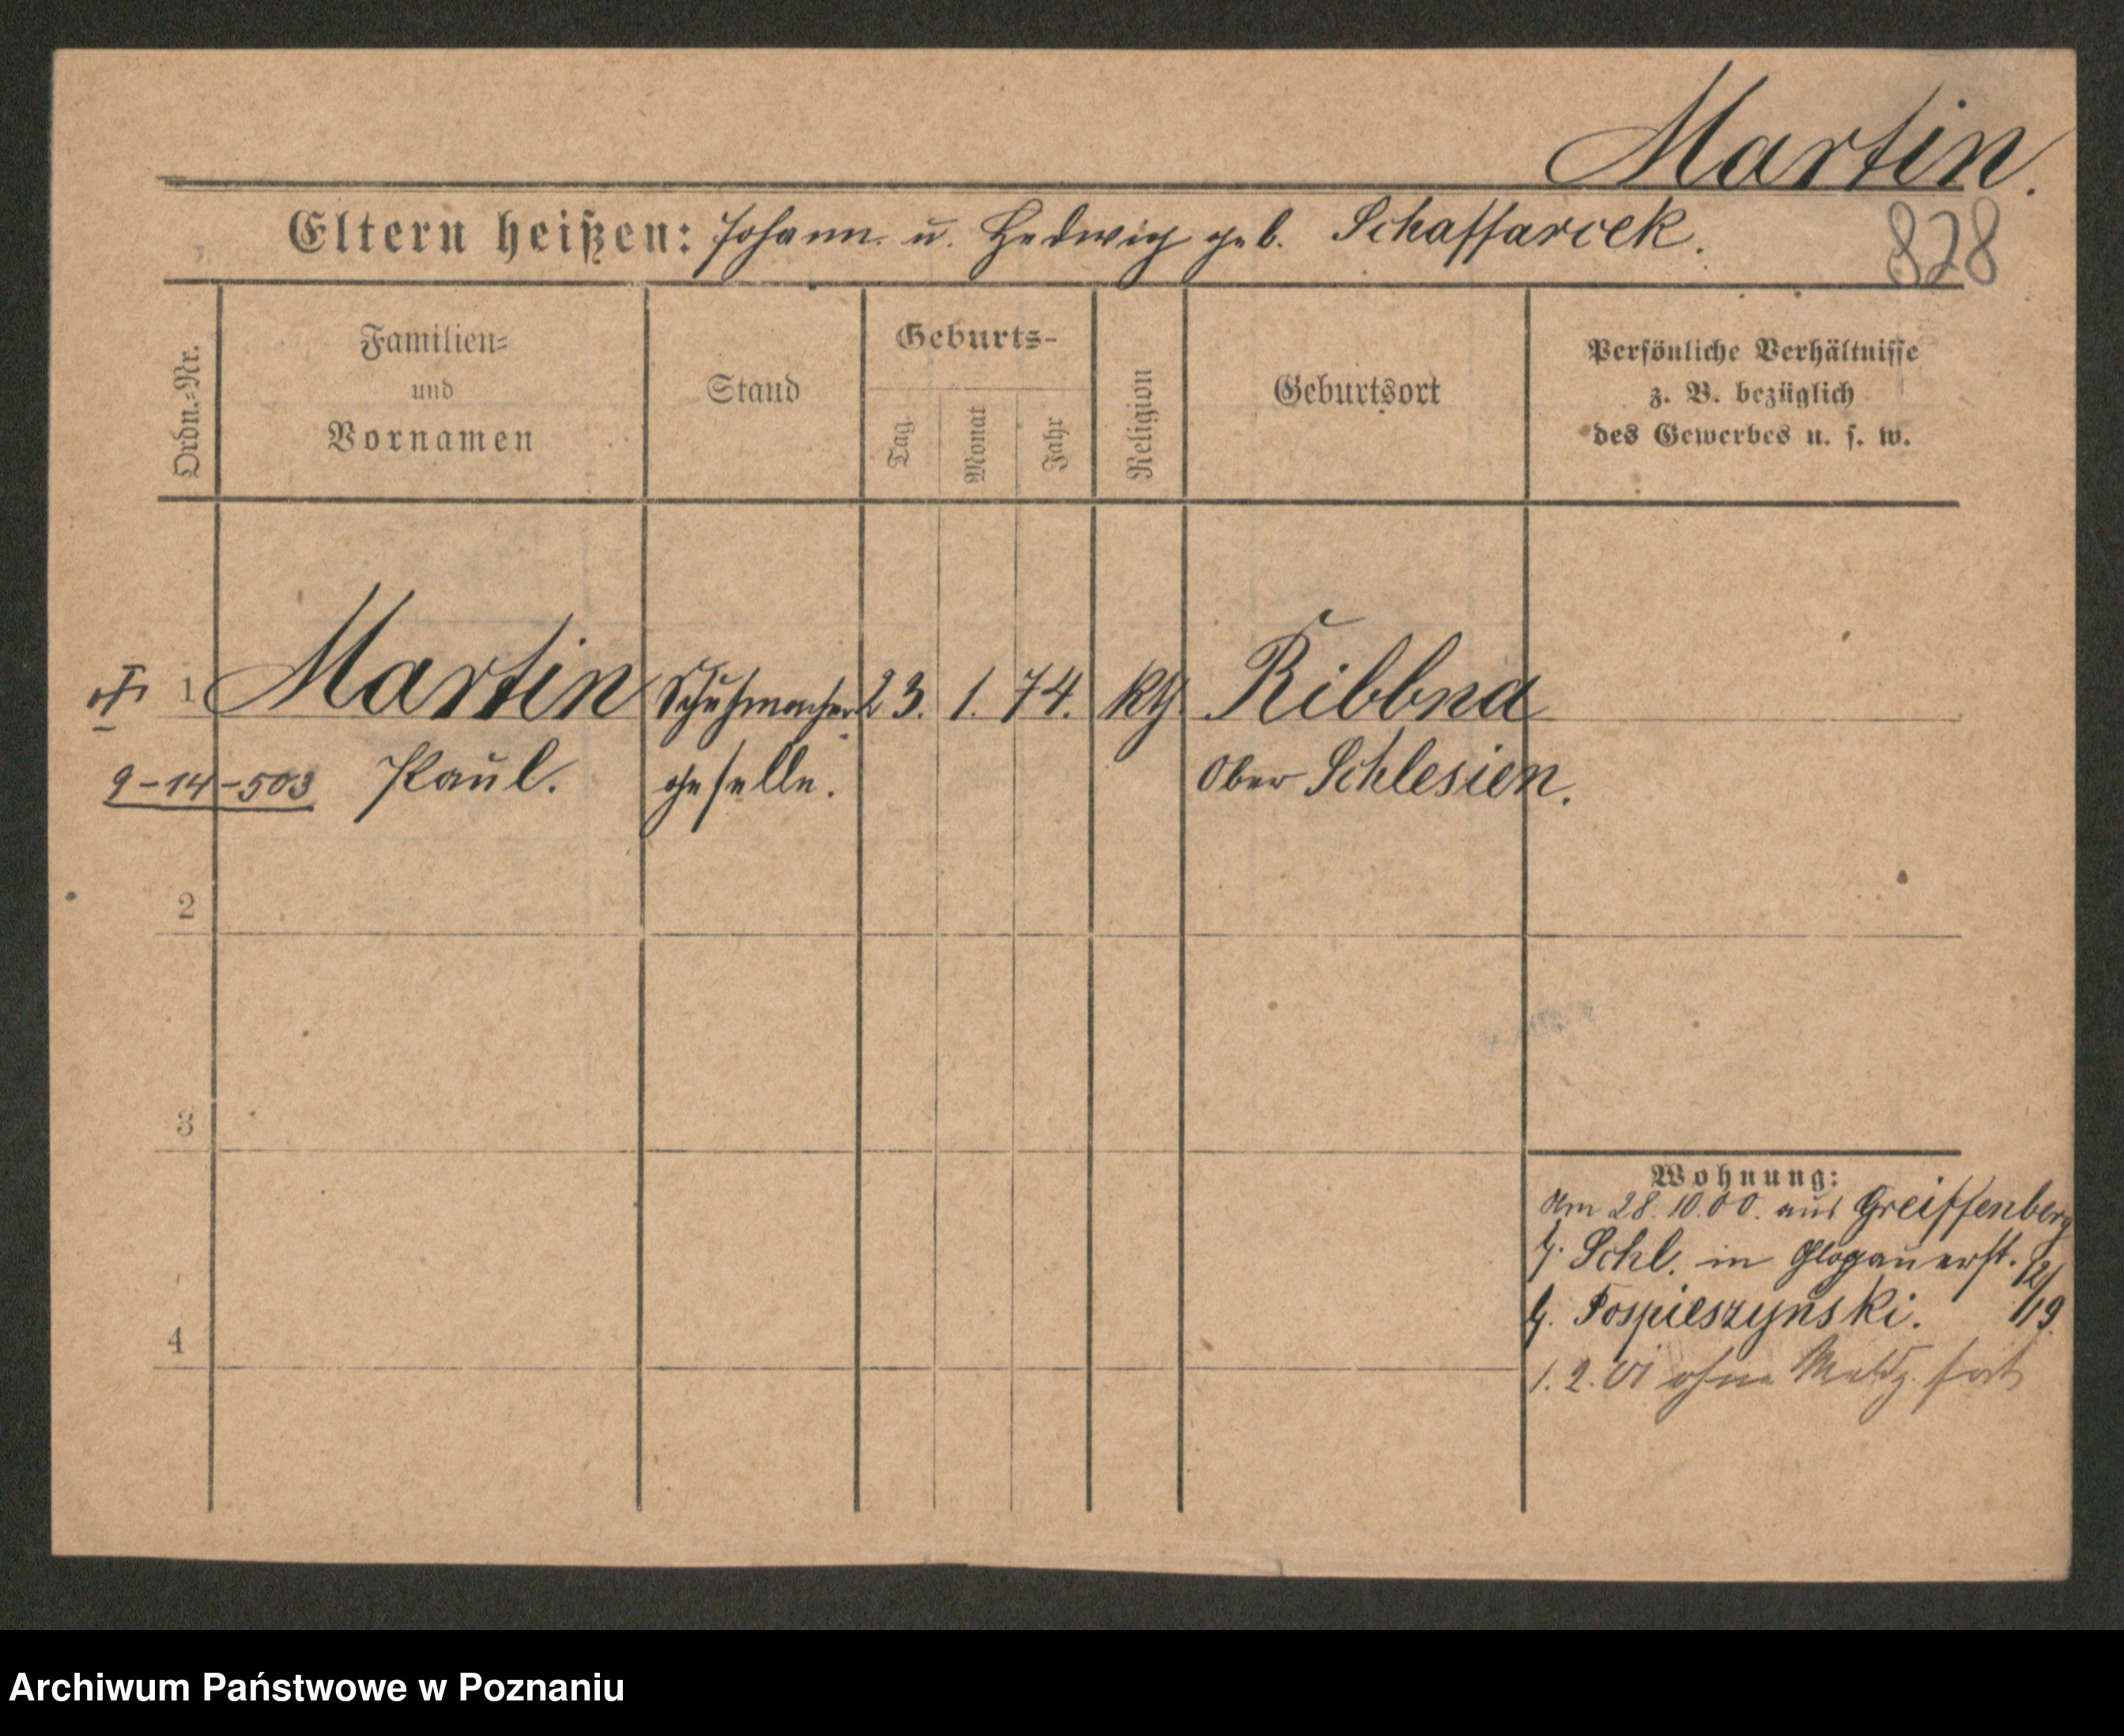 Martin.
Eltern heißen: Johann u. Hedwig geb. Schaffarcek.
828
Ordn.-Nr.
Familien-
und
Vornamen
Stand
Geburts-
Tag
Monat
Jahr
Religion
Geburtsort
Persönliche Verhältnisse
z. B. bezüglich
des Gewerbes u. s. w.
1 Martin Schuhmacher 23. 1. 74. kth. Ribbna
9-14-503 Paul. geselle. Ober Schlesien.
2
3
4
Wohnung:
Am 28.10.00. aus Greiffenberg
Schl. in Glogauerst.
b. Pospieszynski.
1. 2. 01 ohne Meldg. fort
Archiwum Państwowe w Poznaniu